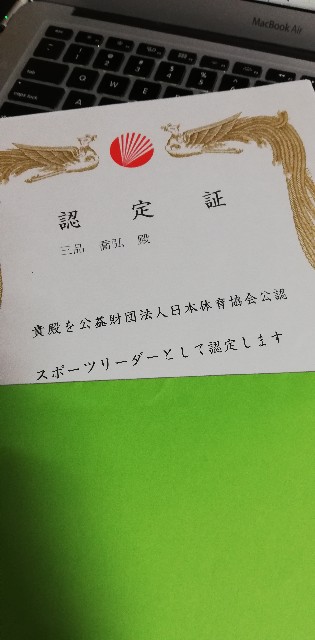 MacBook Air
認定証
三品 弘 殿
貴殿を公益財団法人日本体育協会公認
スポーツリーダーとして認定します